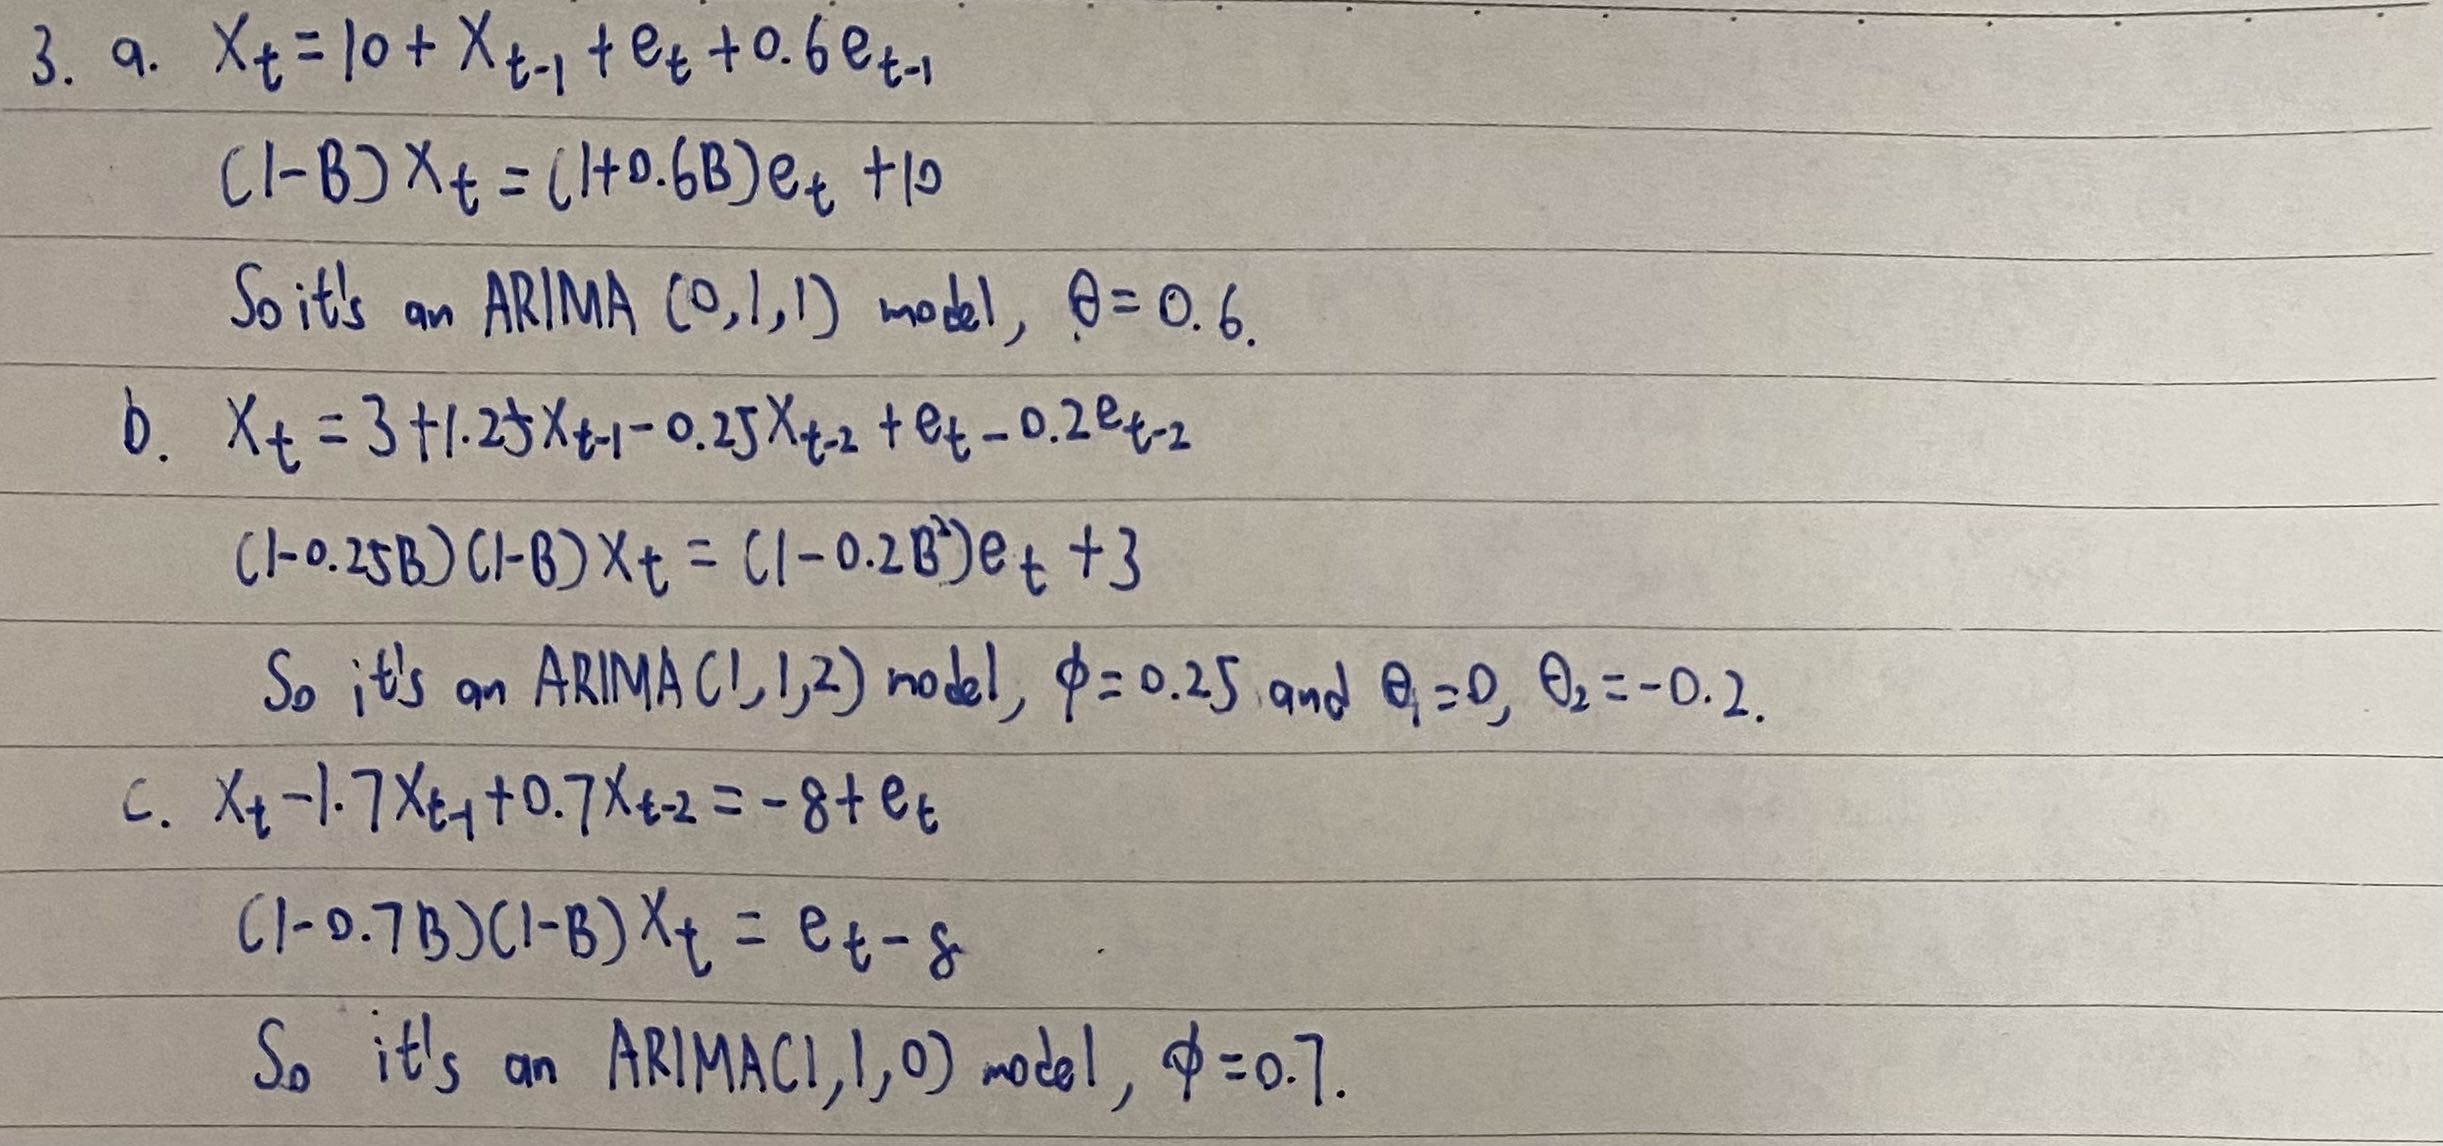 3. a. Xₜ = 10 + Xₜ₋₁ + eₜ + 0.6eₜ₋₁
(1-B)Xₜ = (1+0.6B)eₜ + 10
So it's an ARIMA (0,1,1) model, θ = 0.6.
b. Xₜ = 3 + 1.25Xₜ₋₁ - 0.25Xₜ₋₂ + eₜ - 0.2eₜ₋₂
(1-0.25B)(1-B)Xₜ = (1-0.2B²)eₜ + 3
So it's an ARIMA(1,1,2) model, ϕ = 0.25 and θ₁ = 0, θ₂ = -0.2.
c. Xₜ - 1.7Xₜ₋₁ + 0.7Xₜ₋₂ = -8 + eₜ
(1-0.7B)(1-B)Xₜ = eₜ - 8
So it's an ARIMA(1,1,0) model, ϕ = 0.7.